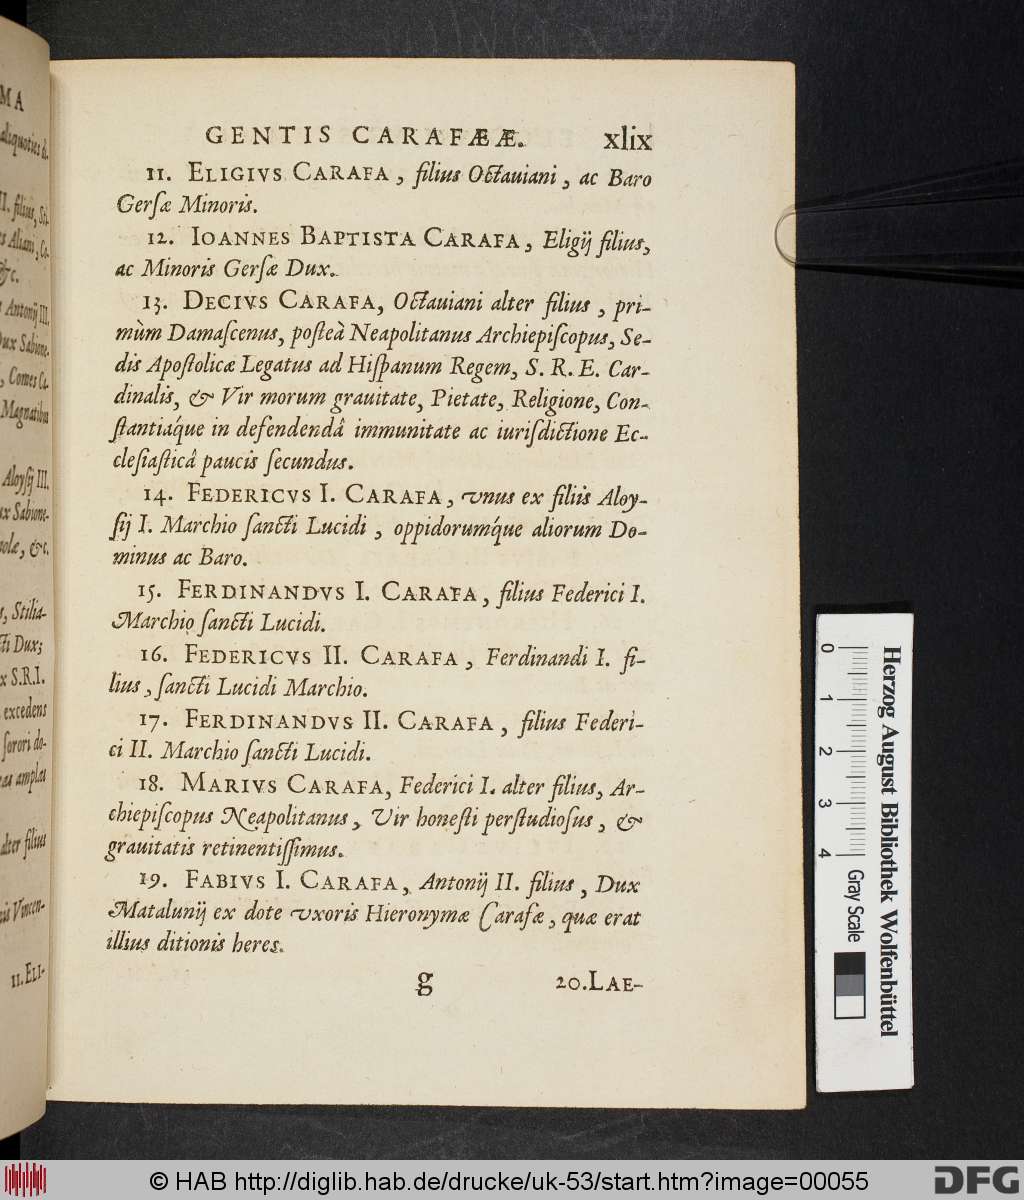 GENTIS CARAFÆÆ. xlix
11. ELIGIVS CARAFA, filius Octauiani, ac Baro
Gersæ Minoris.
12. IOANNES BAPTISTA CARAFA, Eligij filius,
ac Minoris Gersæ Dux.
13. DECIVS CARAFA, Octauiani alter filius, pri-
mùm Damascenus, posteà Neapolitanus Archiepiscopus, Se-
dis Apostolicæ Legatus ad Hispanum Regem, S. R. E. Car-
dinalis, & Vir morum grauitate, Pietate, Religione, Con-
stantiáque in defendendâ immunitate ac iurisdictione Ec-
clesiasticâ paucis secundus.
14. FEDERICVS I. CARAFA, vnus ex filiis Aloy-
sij I. Marchio sancti Lucidi, oppidorumq́ue aliorum Do-
minus ac Baro.
15. FERDINANDVS I. CARAFA, filius Federici I.
Marchio sancti Lucidi.
16. FEDERICVS II. CARAFA, Ferdinandi I. fi-
lius, sancti Lucidi Marchio.
17. FERDINANDVS II. CARAFA, filius Federi-
ci II. Marchio sancti Lucidi.
18. MARIVS CARAFA, Federici I. alter filius, Ar-
chiepiscopus Neapolitanus, Vir honesti perstudiosus, &
grauitatis retinentissimus.
19. FABIVS I. CARAFA, Antonij II. filius, Dux
Matalunij ex dote vxoris Hieronymæ Carafæ, quæ erat
illius ditionis heres.
g 20.LAE-
MA
aliquoties
II. filius,
Aliani, Co-
&c.
Antonij III.
Dux Sabione-
, Comes
Magnatibus
Aloysij III.
Sabione-
&c.
Stilia-
Dux;
S.R.I.
excedens
sorori do-
alter filius
Vincen-
11.ELI-
0
1
2
3
4
Gray Scale
Herzog August Bibliothek Wolfenbüttel
© HAB http://diglib.hab.de/drucke/uk-53/start.htm?image=00055
DFG